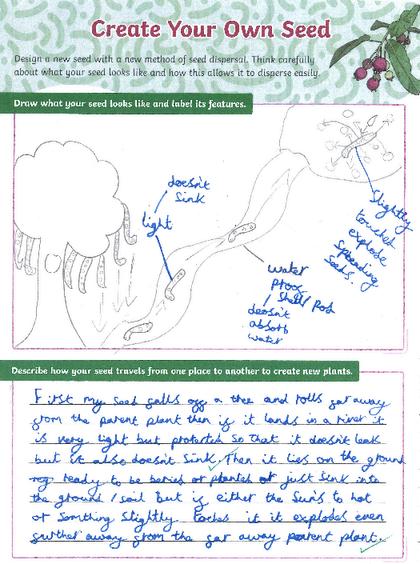 Create Your Own Seed
Design a new seed with a new method of seed dispersal. Think carefully
about what your seed looks like and how this allows it to disperse easily.
Draw what your seed looks like and label its features.
doesn't
sink
light
Slightly
touched
explode
spreading
seeds.
water
proof
/ Shell/pod
doesn't
absorb
water
Describe how your seed travels from one place to another to create new plants.
First my seed falls off a tree and rolls far away
from the parent plant then if it lands in a river it
is very light but protected so that it doesn't leak
but it also doesn't sink. Then it lies on the ground
ready to be beries or planted or just sink into
the ground / soil But if either the Sun's to hot
or somthing slightly toches it it explodes even
further away from the far away parent plant.